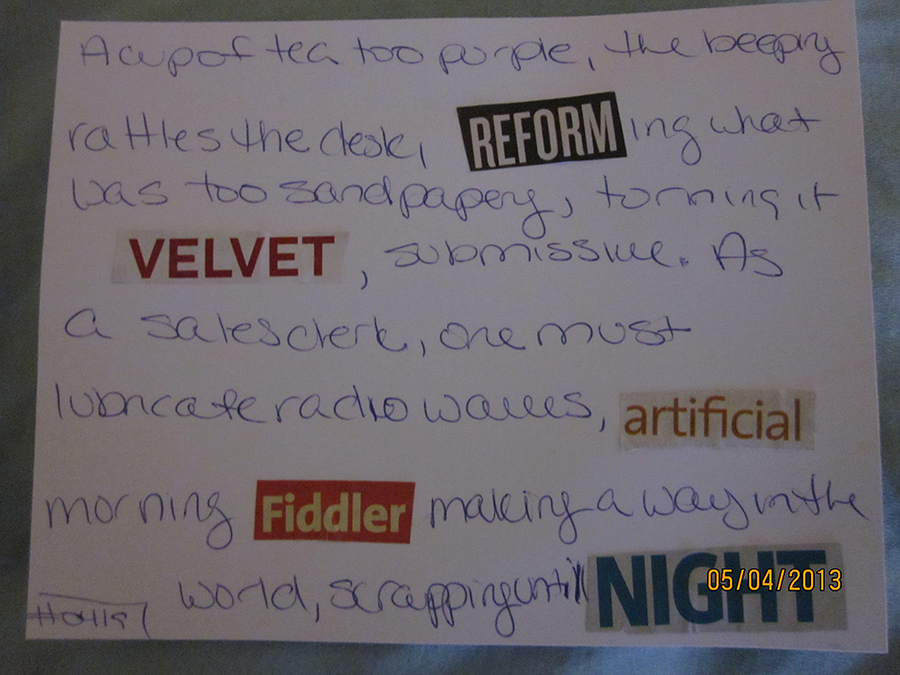 A cup of tea too purple, the beepry
rattles the desk, REFORMing what
was too sandpapery, turning it
VELVET, submissive. As
a salesclerk, one must
lubricate radio waves, artificial
morning Fiddler making a way in the
world, scrapping until NIGHT
05/04/2013